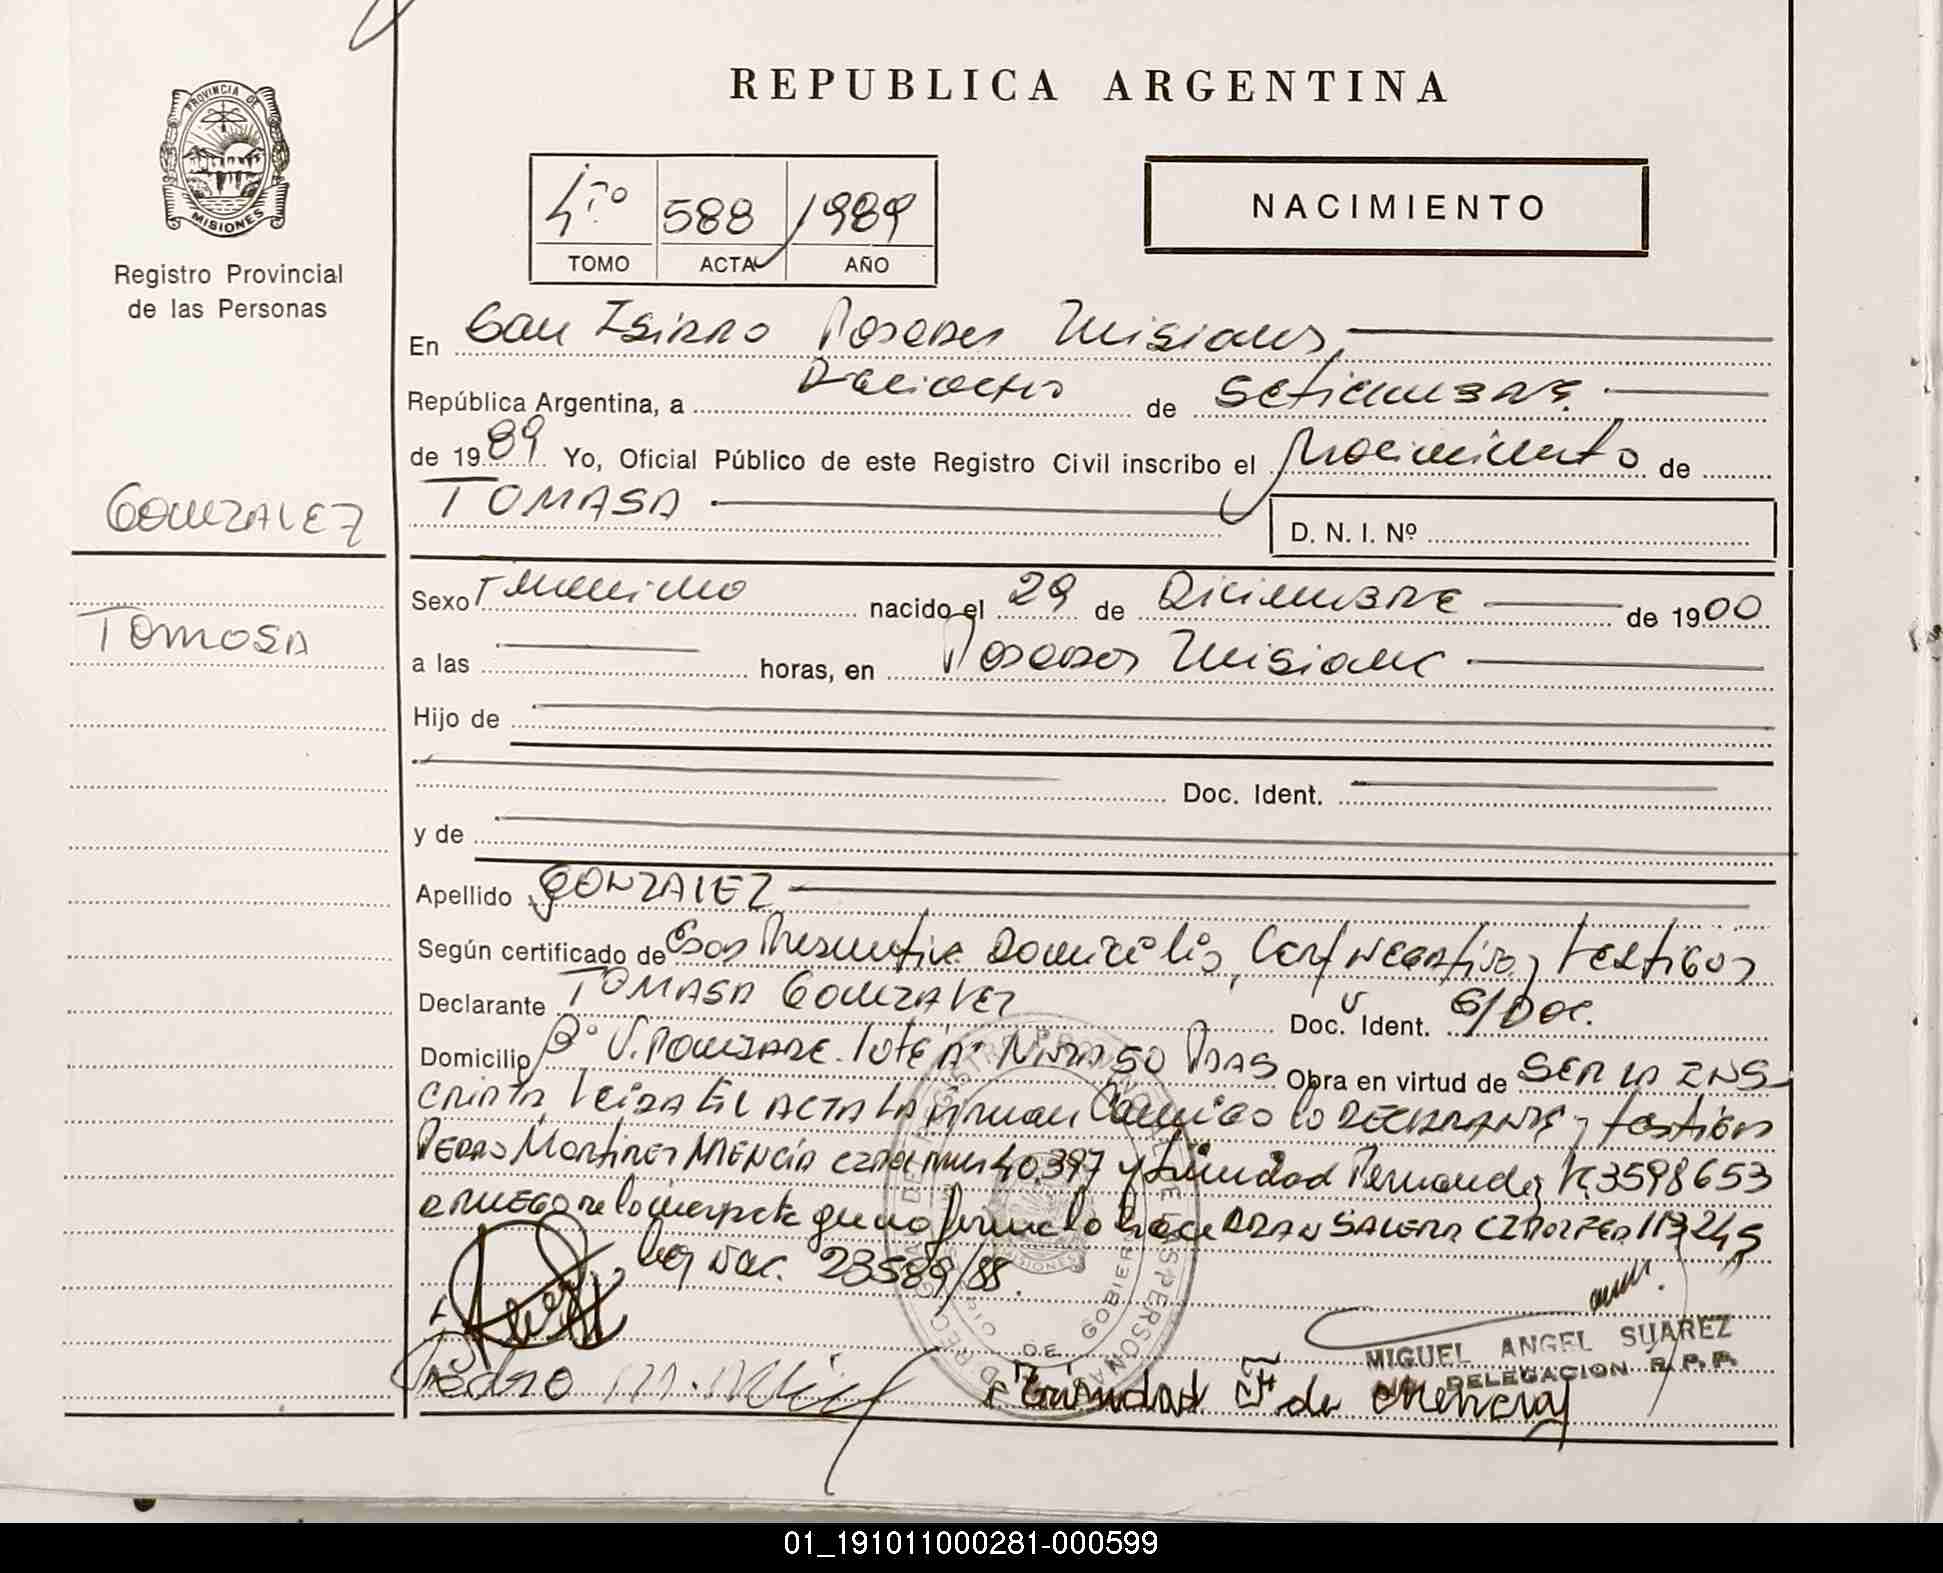 REPUBLICA ARGENTINA
PROVINCIA DE
MISIONES
Registro Provincial
de las Personas
4to 588 1989
TOMO ACTA AÑO
NACIMIENTO
En San Isidro Posadas Misiones,
República Argentina, a Dieciocho de Setiembre.
de 1989 Yo, Oficial Público de este Registro Civil inscribo el Nacimiento de
TOMASA
D. N. I. Nº
GONZALEZ
TOMASA
Sexo Femenino nacido el 29 de Diciembre de 1900
a las horas, en Posadas Misiones
Hijo de
Doc. Ident.
y de
Apellido GONZALEZ
Según certificado de Domicilio, Cert Negativo y testigos
Declarante TOMASA GONZALEZ Doc. Ident. S/Doc.
Domicilio Bº Lote Nº 50 Pdas Obra en virtud de SER LA INS
CRIPTA Leida EL ACTA LA firman Conmigo la DECLARANTE y testigos
PEDRO Martinez MENCIA 40.397 y Trinidad Fernandez 3598653
a RUEGO de la inscripta que no firma lo hace
23589/88.
Pedro M.
MIGUEL ANGEL SUAREZ
DELEGACION R.P.P.
Trinidad F de Mencia
01_191011000281-000599